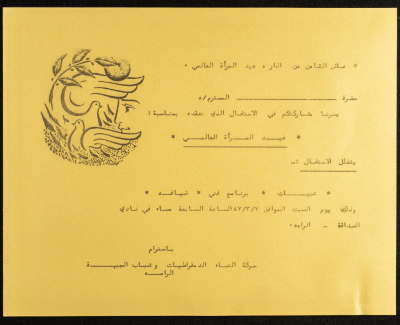 * عاش الثامن من اذار، عيد المرأة العالمي *
حضرة ـــــــــــــــــ المحترم/ه
يسرنا مشاركتكم في الاحتفال الذي نعقده بمناسبة:
* عيد المرأة العالمي *
يتخلل الاحتفال :ـ
* تحيات * برنامج فني * ضيافه *
وذلك يوم السبت الموافق ٨٧/٣/٧ الساعة السابعة مساء في نادي
الصداقة ـ الرامه.
باحترام
حركة النساء الديمقراطيات وشباب الجبهة
الرامه